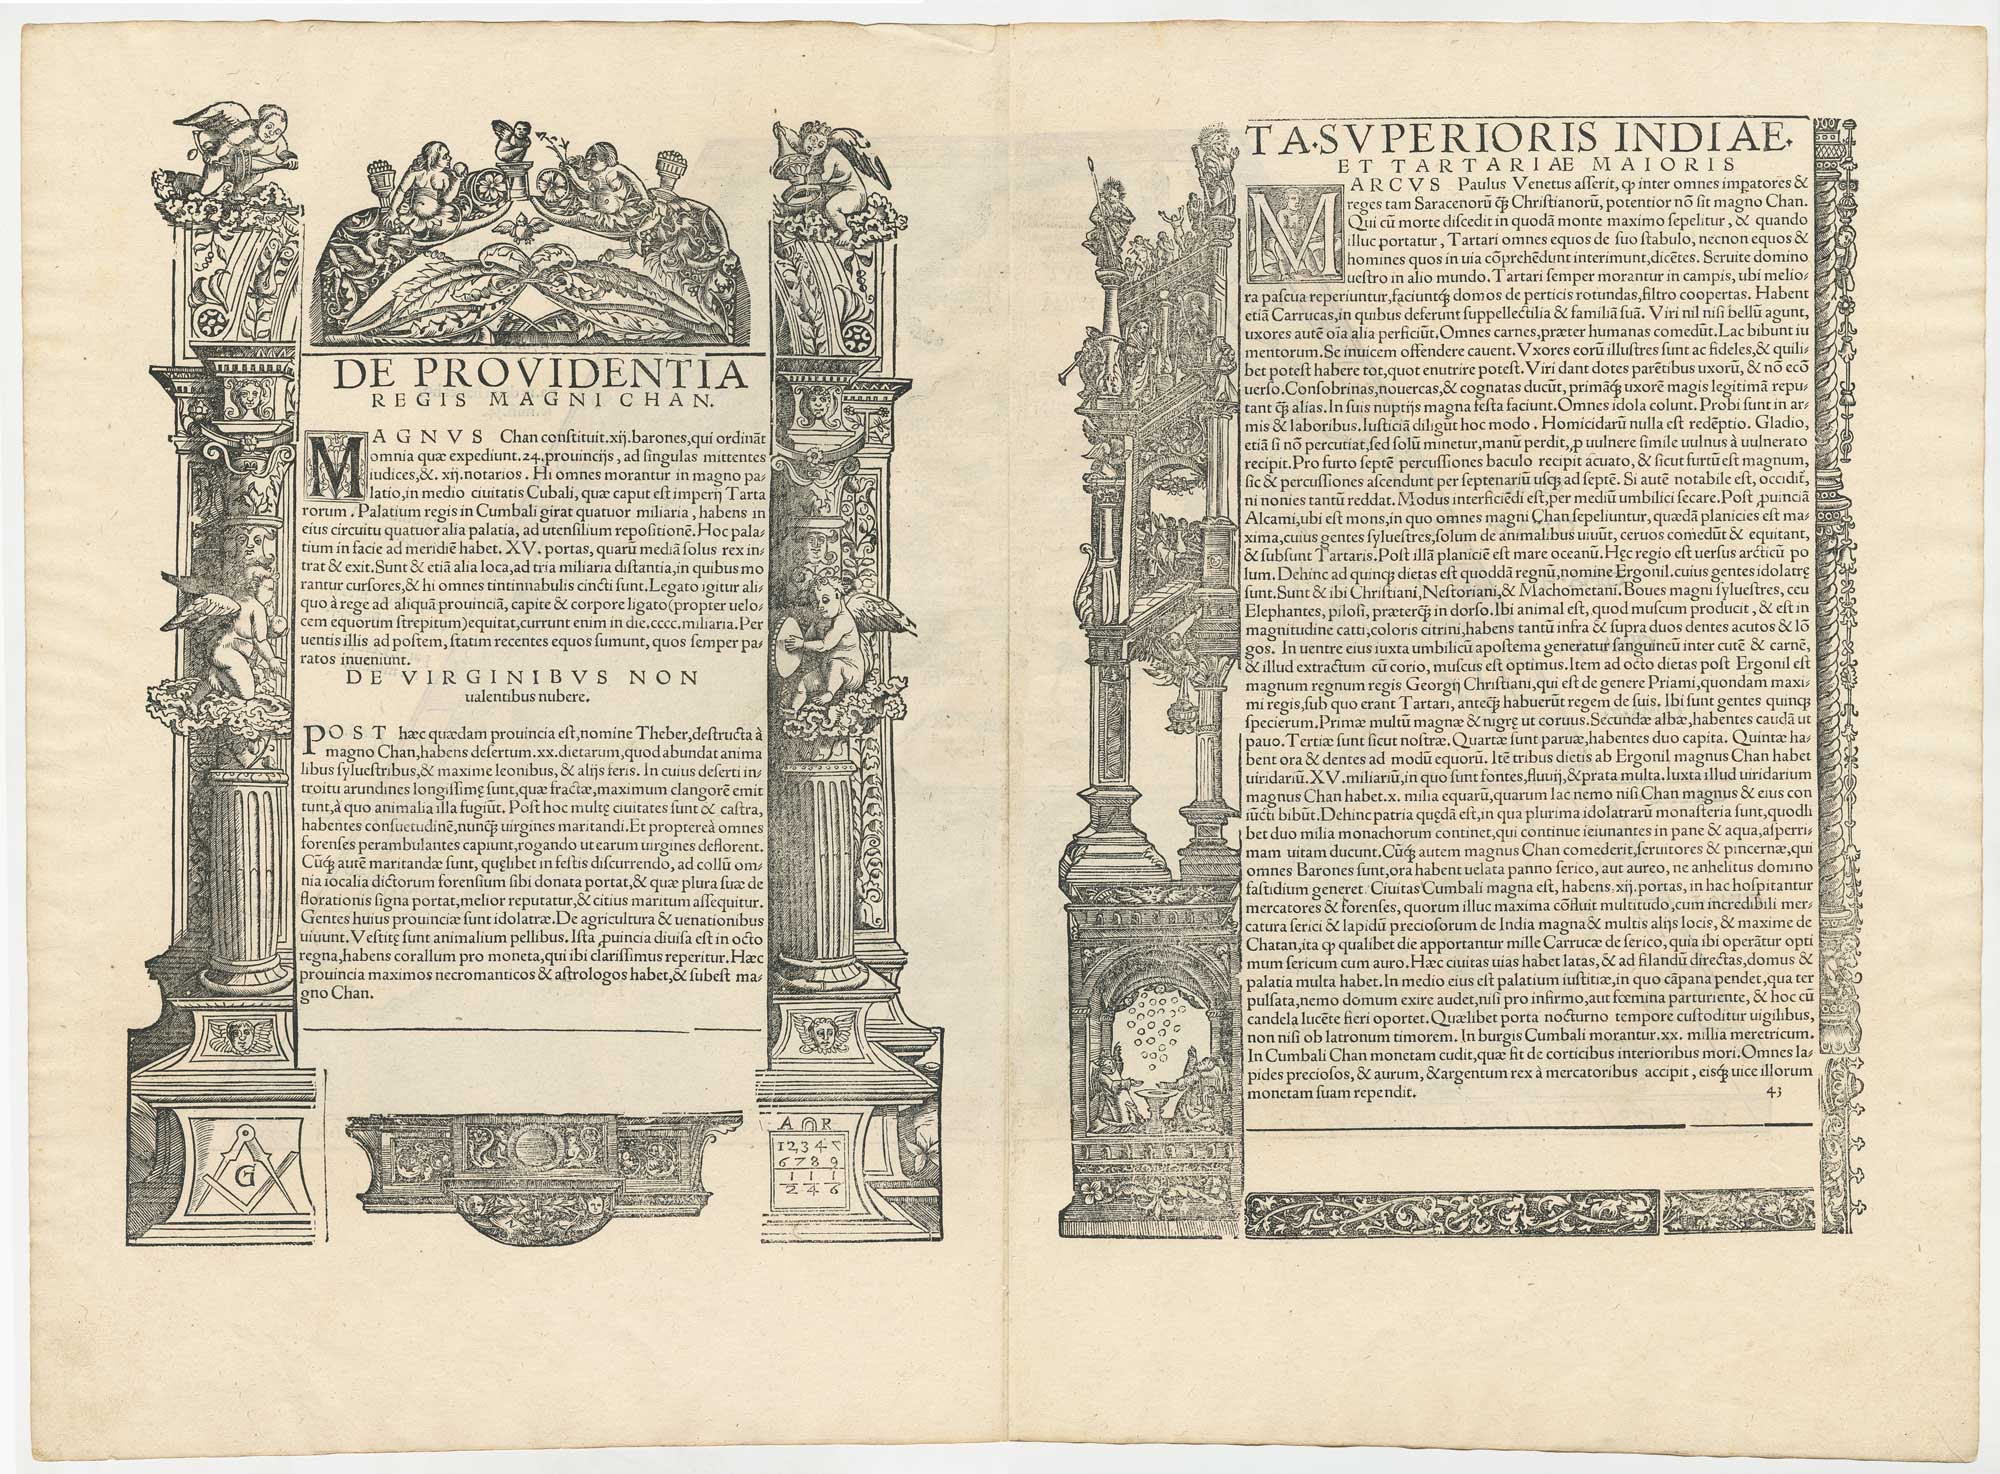 DE PROVIDENTIA
REGIS MAGNI CHAN.
MAGNVS Chan constituit.xij.barones,qui ordināt
omnia quæ expediunt.24.prouincijs, ad singulas mittentes
iudices,&. xij.notarios. Hi omnes morantur in magno pa-
latio,in medio ciuitatis Cubali, quæ caput est imperij Tarta
rorum. Palatium regis in Cumbali girat quatuor miliaria, habens in
eius circuitu quatuor alia palatia, ad utensilium repositionē.Hoc pala-
tium in facie ad meridiē habet. XV. portas, quarū mediā solus rex in-
trat & exit.Sunt & etiā alia loca,ad tria miliaria distantia,in quibus mo
rantur cursores,& hi omnes tintinnabulis cincti sunt.Legato igitur ali-
quo à rege ad aliquā prouinciā, capite & corpore ligato(propter uelo-
cem equorum strepitum)equitat,currunt enim in die.cccc.miliaria.Per
uentis illis ad postem, statim recentes equos sumunt, quos semper pa-
ratos inueniunt.
DE VIRGINIBVS NON
ualentibus nubere.
POST hæc quædam prouincia est,nomine Theber,destructa à
magno Chan,habens desertum.xx.dietarum,quod abundat anima
libus syluestribus,& maxime leonibus, & alijs feris. In cuius deserti in-
troitu arundines longissimę sunt,quæ fractæ,maximum clangorē emit
tunt,à quo animalia illa fugiūt. Post hoc multę ciuitates sunt & castra,
habentes consuetudinē,nunq̄ uirgines maritandi.Et propterea omnes
forenses perambulantes capiunt,rogando ut earum uirgines deflorent.
Cūq̄ autē maritandæ sunt, quęlibet in festis discurrendo, ad collū om-
nia iocalia dictorum forensium sibi donata portat,& quæ plura suæ de
florationis signa portat,melior reputatur,& citius maritum assequitur.
Gentes huius prouinciæ sunt idolatræ. De agricultura & uenationibus
uiuunt. Vestitę sunt animalium pellibus. Ista ꝓuincia diuisa est in octo
regna,habens corallum pro moneta,qui ibi clarissimus reperitur. Hæc
prouincia maximos necromanticos & astrologos habet,& subest ma-
gno Chan.
G
A R
12347
6789
1 1 1
2 4 6
TA·SVPERIORIS INDIAE·
ET TARTARIAE MAIORIS
MARCVS Paulus Venetus asserit, ꝙ inter omnes impatores &
reges tam Saracenorū q̄ Christianorū, potentior nō sit magno Chan.
Qui cū morte discedit in quodā monte maximo sepelitur, & quando
illuc portatur, Tartari omnes equos de suo stabulo, necnon equos &
homines quos in uia cōprehēdunt interimunt,dicētes. Seruite domino
uestro in alio mundo. Tartari semper morantur in campis, ubi melio-
ra pascua reperiuntur,faciuntq̄ domos de perticis rotundas,filtro coopertas. Habent
etiā Carrucas,in quibus deferunt suppellectilia & familiā suā. Viri nil nisi bellū agunt,
uxores autē oīa alia perficiūt. Omnes carnes,præter humanas comedūt. Lac bibunt iu
mentorum. Se inuicem offendere cauent. Vxores eorū illustres sunt ac fideles,& quili-
bet potest habere tot,quot enutrire potest. Viri dant dotes parētibus uxorū, & nō ecō
uerso.Consobrinas,nouercas,& cognatas ducūt, primāq̄ uxorē magis legitimā repu-
tant q̄ alias. In suis nuptijs magna festa faciunt. Omnes idola colunt. Probi sunt in ar-
mis & laboribus. Iusticiā diligūt hoc modo. Homicidarū nulla est redēptio. Gladio,
etiā si nō percutiat,sed solū minetur,manū perdit, ꝓ uulnere simile uulnus à uulnerato
recipit. Pro furto septē percussiones baculo recipit acuato, & sicut furtū est magnum,
sic & percussiones ascendunt per septenariū usq̄ ad septē. Si autē notabile est, occidit,
ni nonies tantū reddat. Modus interficiēdi est,per mediū umbilici secare. Post ꝓuinciā
Alcami,ubi est mons,in quo omnes magni Chan sepeliuntur, quædā planicies est ma-
xima,cuius gentes syluestres,solum de animalibus uiuūt, ceruos comedūt & equitant,
& subsunt Tartaris. Post illā planiciē est mare oceanū. Hęc regio est uersus arcticū po
lum. Dehinc ad quinq̄ dietas est quoddā regnū,nomine Ergonil.cuius gentes idolatrę
sunt. Sunt & ibi Christiani,Nestoriani,& Machometani. Boues magni syluestres, ceu
Elephantes, pilosi, præterq̄ in dorso. Ibi animal est, quod muscum producit, & est in
magnitudine catti,coloris citrini,habens tantū infra & supra duos dentes acutos & lō
gos. In uentre eius iuxta umbilicū apostema generatur sanguineū inter cutē & carnē,
& illud extractum cū corio, muscus est optimus.Item ad octo dietas post Ergonil est
magnum regnum regis Georgij Christiani,qui est de genere Priami,quondam maxi-
mi regis,sub quo erant Tartari, anteq̄ habuerūt regem de suis. Ibi sunt gentes quinq̄
specierum. Primæ multū magnæ & nigrę ut coruus. Secundæ albæ,habentes caudā ut
pauo. Tertiæ sunt sicut nostræ. Quartæ sunt paruæ,habentes duo capita. Quintæ ha-
bent ora & dentes ad modū equorū. Itē tribus dietis ab Ergonil magnus Chan habet
uiridariū. XV.miliariū,in quo sunt fontes,fluuij,& prata multa.Iuxta illud uiridarium
magnus Chan habet.x. milia equarū,quarum lac nemo nisi Chan magnus & eius con
iūcti bibūt. Dehinc patria quędā est,in qua plurima idolatrarū monasteria sunt,quodli
bet duo milia monachorum continet,qui continue ieiunantes in pane & aqua,asperri-
mam uitam ducunt. Cūq̄ autem magnus Chan comederit,seruitores & pincernæ,qui
omnes Barones sunt,ora habent uelata panno serico, aut aureo, ne anhelitus domino
fastidium generet. Ciuitas Cumbali magna est, habens.xij.portas, in hac hospitantur
mercatores & forenses, quorum illuc maxima cōfluit multitudo,cum incredibili mer-
catura serici & lapidū preciosorum de India magna & multis alijs locis, & maxime de
Chatan,ita ꝙ qualibet die apportantur mille Carrucæ de serico,quia ibi operātur opti
mum sericum cum auro. Hæc ciuitas uias habet latas, & ad filandū directas,domus &
palatia multa habet. In medio eius est palatium iustitiæ,in quo cāpana pendet,qua ter
pulsata,nemo domum exire audet,nisi pro infirmo,aut fœmina parturiente, & hoc cū
candela lucēte fieri oportet. Quælibet porta nocturno tempore custoditur uigilibus,
non nisi ob latronum timorem. In burgis Cumbali morantur.xx. millia meretricum.
In Cumbali Chan monetam cudit,quæ fit de corticibus interioribus mori. Omnes la-
pides preciosos, & aurum, & argentum rex à mercatoribus accipit, eisq̄ uice illorum
monetam suam rependit.
43